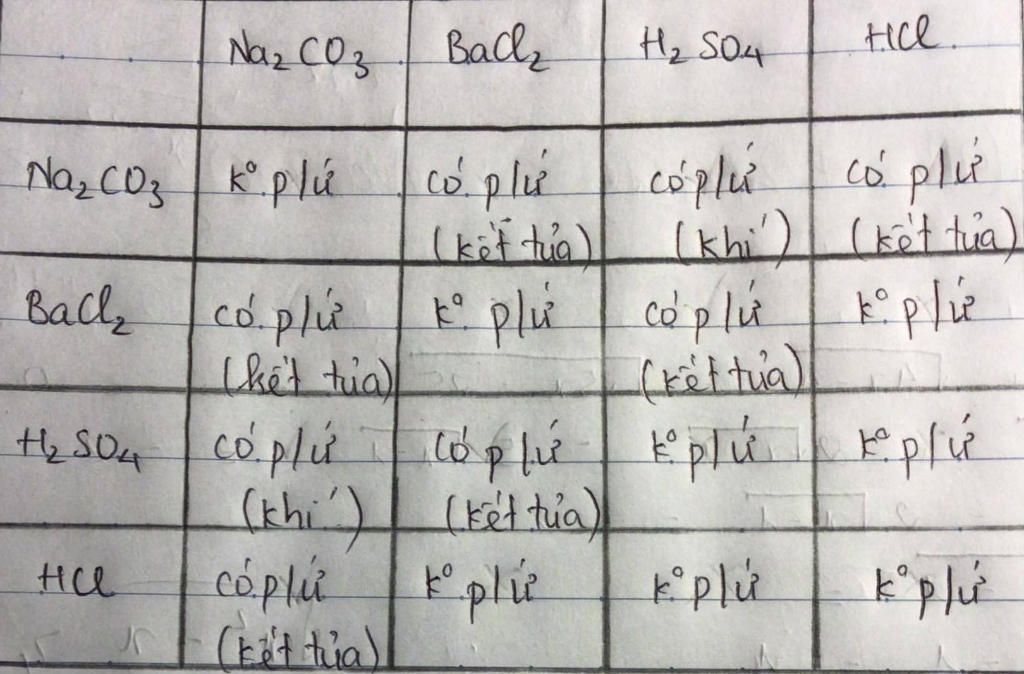 Na2CO3 BaCl2 H2SO4 HCl
Na2CO3 k° p/ứ có p/ứ có p/ứ có p/ứ
(kết tủa) (khí) (kết tủa)
BaCl2 có p/ứ k° p/ứ có p/ứ k° p/ứ
(kết tủa) (kết tủa)
H2SO4 có p/ứ có p/ứ k° p/ứ k° p/ứ
(khí) (kết tủa)
HCl có p/ứ k° p/ứ k° p/ứ k° p/ứ
(kết tủa)